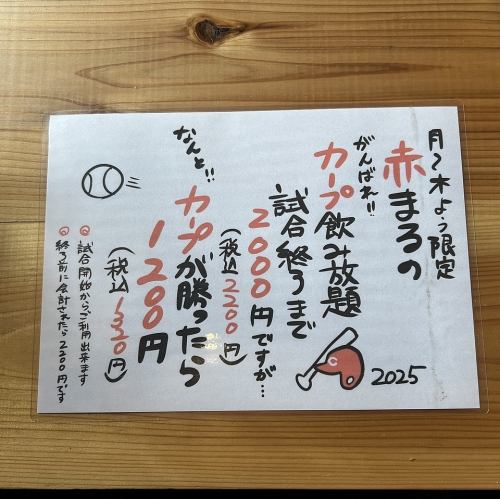 月〜木よう限定
赤まろの
がんばれ!!
カープ飲み放題
試合終うまで
2000円ですが…
(税込2200円)
なんと!!
カープが勝ったら
1200円
(税込1320円)
試合開始からご利用出来ます
終了前に会計されたら2200円です
2025
C